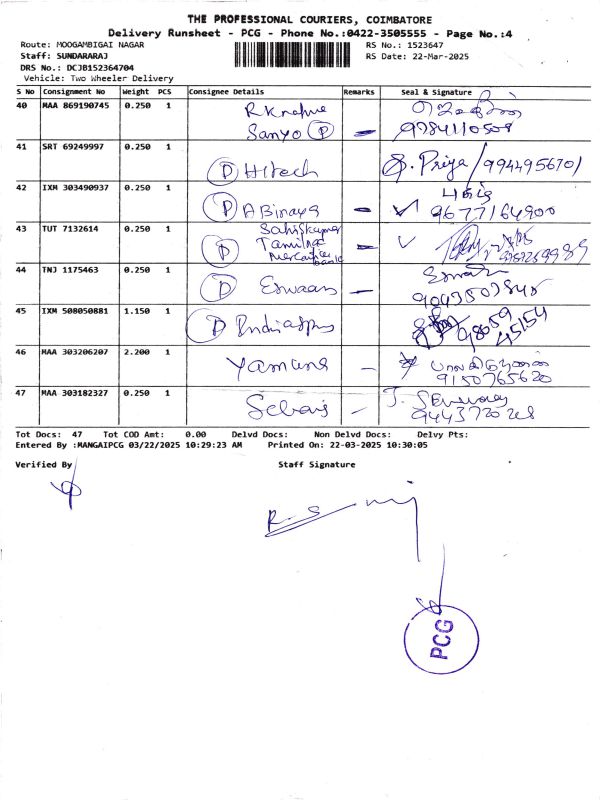 THE PROFESSIONAL COURIERS, COIMBATORE
Delivery Runsheet - PCG - Phone No.:0422-3505555 - Page No.:4
Route: MOOGAMBIGAI NAGAR RS No.: 1523647
Staff: SUNDARARAJ RS Date: 22-Mar-2025
DRS No.: DCJB152364704
Vehicle: Two Wheeler Delivery
S No Consignment No Weight PCS Consignee Details Remarks Seal & Signature
40 MAA 869190745 0.250 1
Sanyo P - 9784110508
41 SRT 69249997 0.250 1
D Hitech S. Priya / 9944956701
42 IXM 303490937 0.250 1
D ABinaya - 9677164900
43 TUT 7132614 0.250 1 Sahiskumar
D Tamilnad -
Mercantile
bank
44 TNJ 1175463 0.250 1
D Eswaan -
45 IXM 508050881 1.150 1
D 98059
45154
46 MAA 303206207 2.200 1
Yamuna 9150765620
47 MAA 303182327 0.250 1
- 9443720268
Tot Docs: 47 Tot COD Amt: 0.00 Delvd Docs: Non Delvd Docs: Delvy Pts:
Entered By :MANGAIPCG 03/22/2025 10:29:23 AM Printed On: 22-03-2025 10:30:05
Verified By Staff Signature
PCG